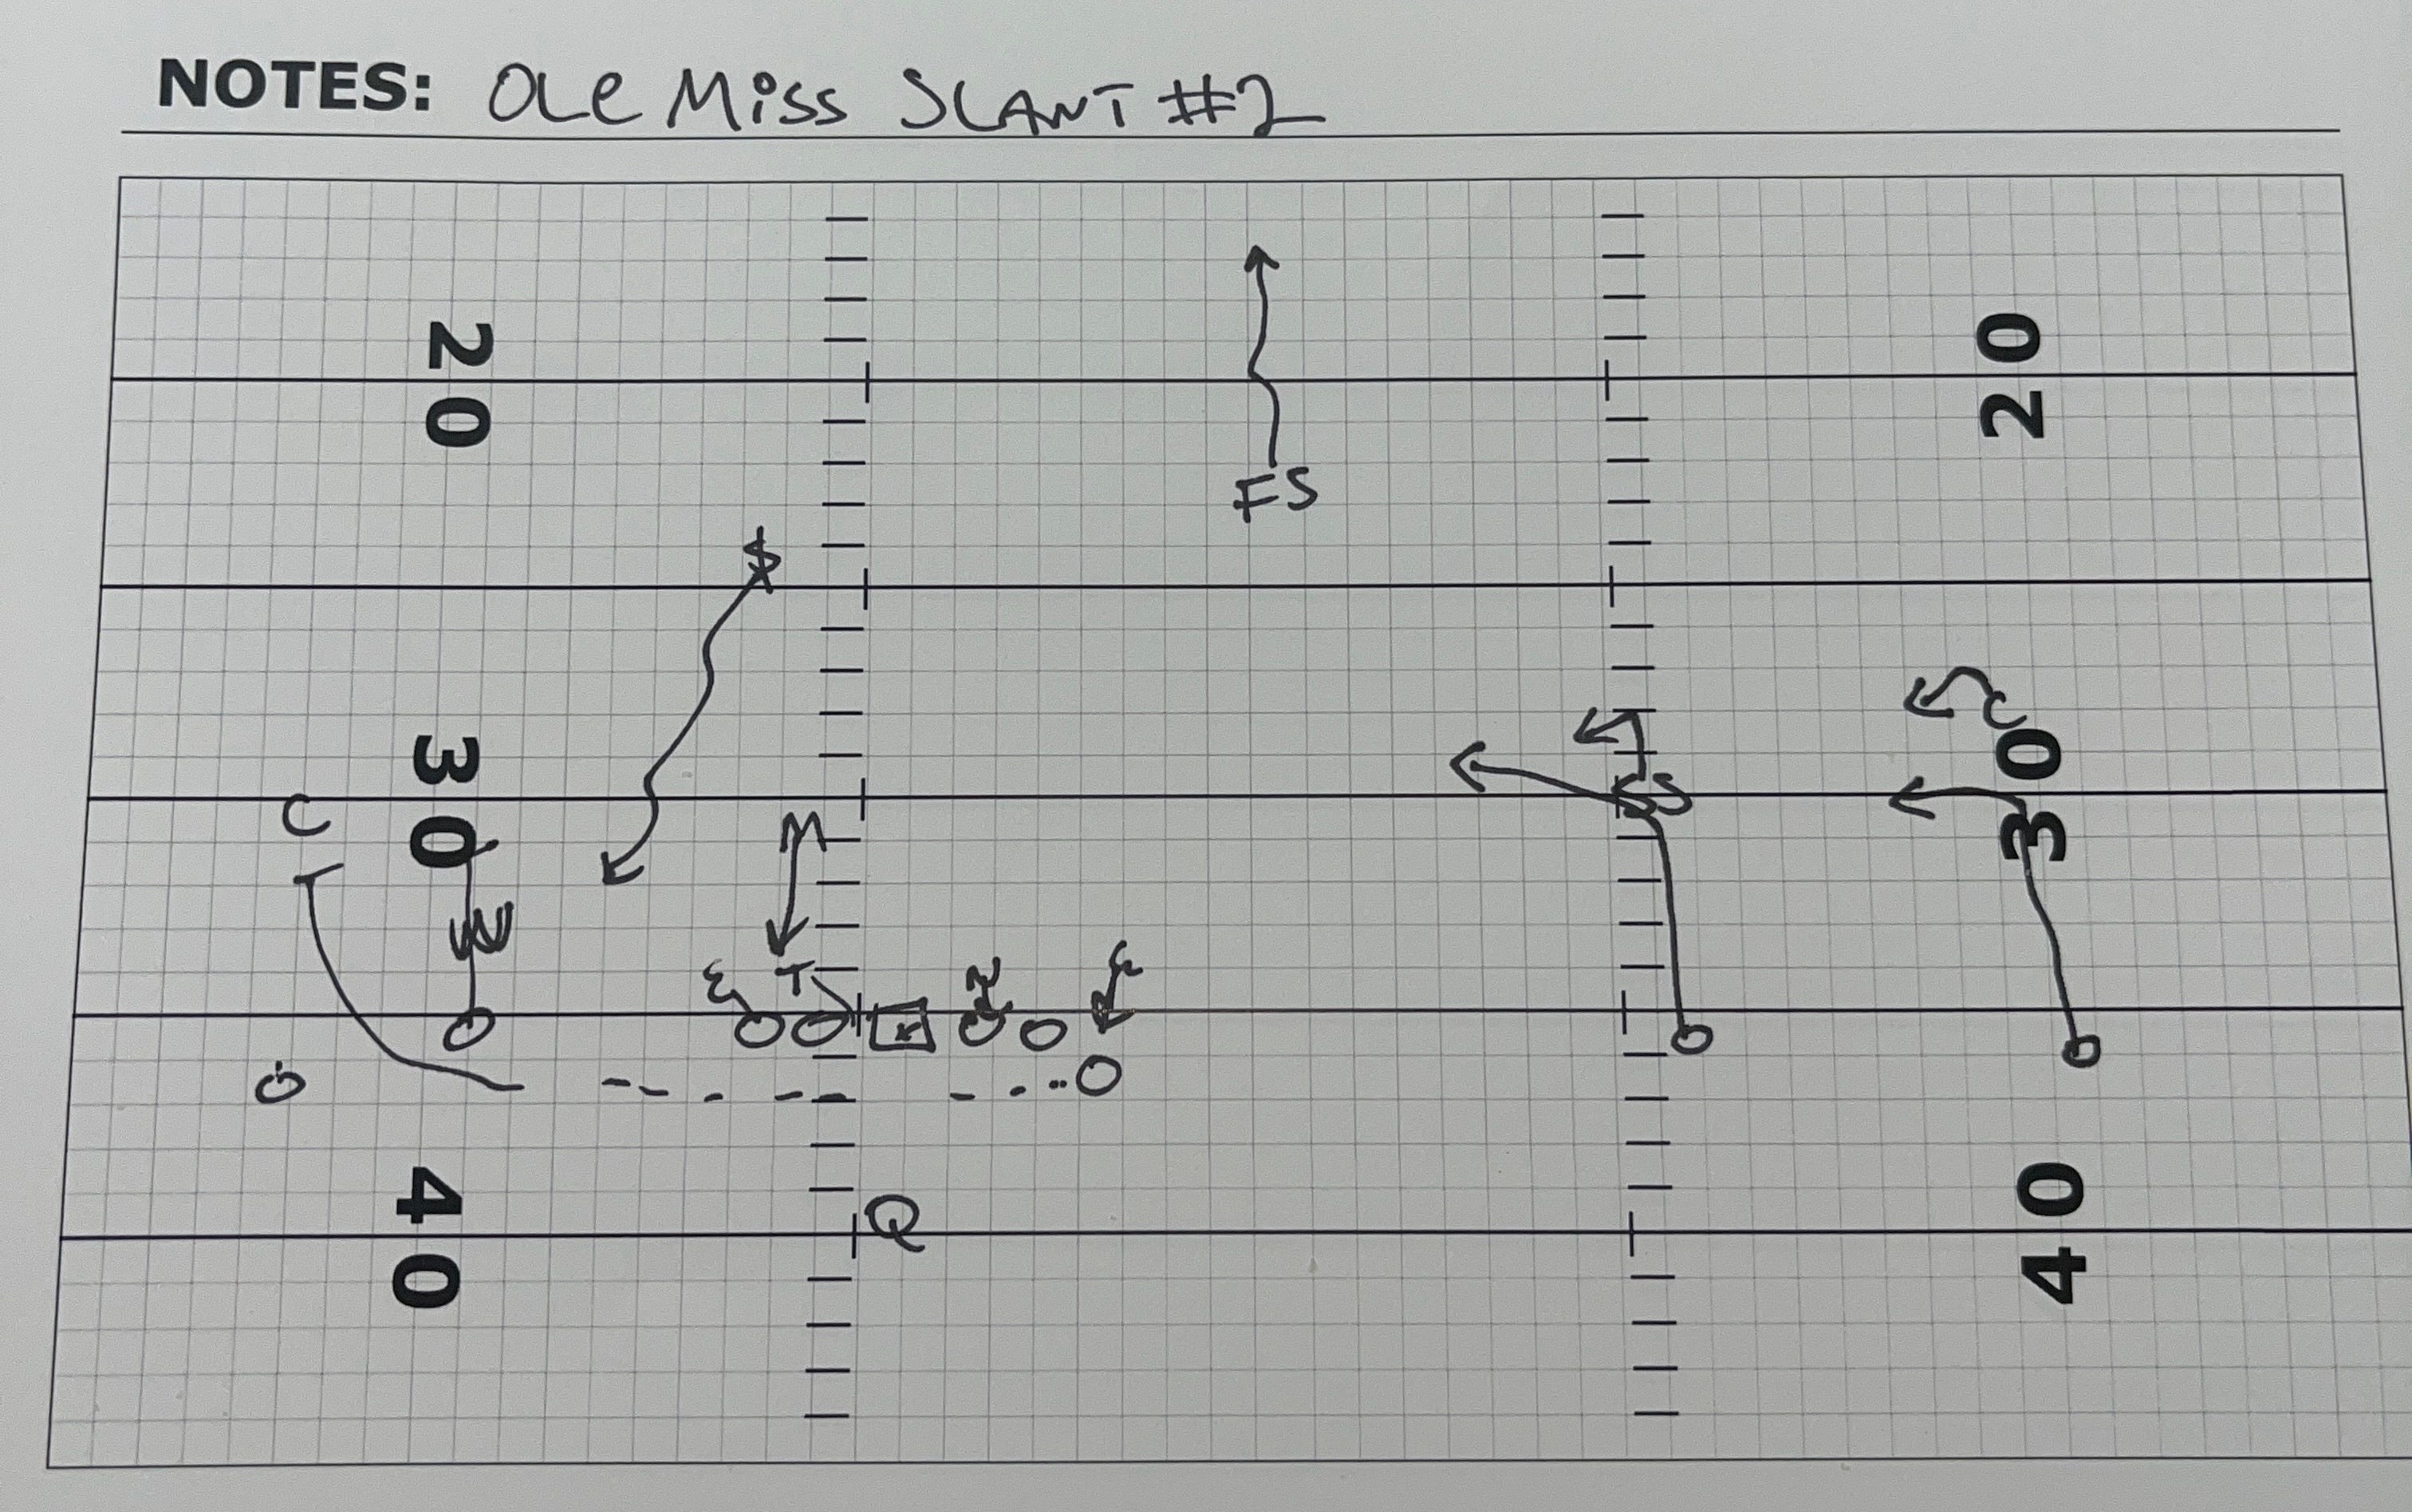 NOTES: OLE MISS SLANT #2
20 20
FS
$
C
30 30
C M
W
E T N E
Q
40 40